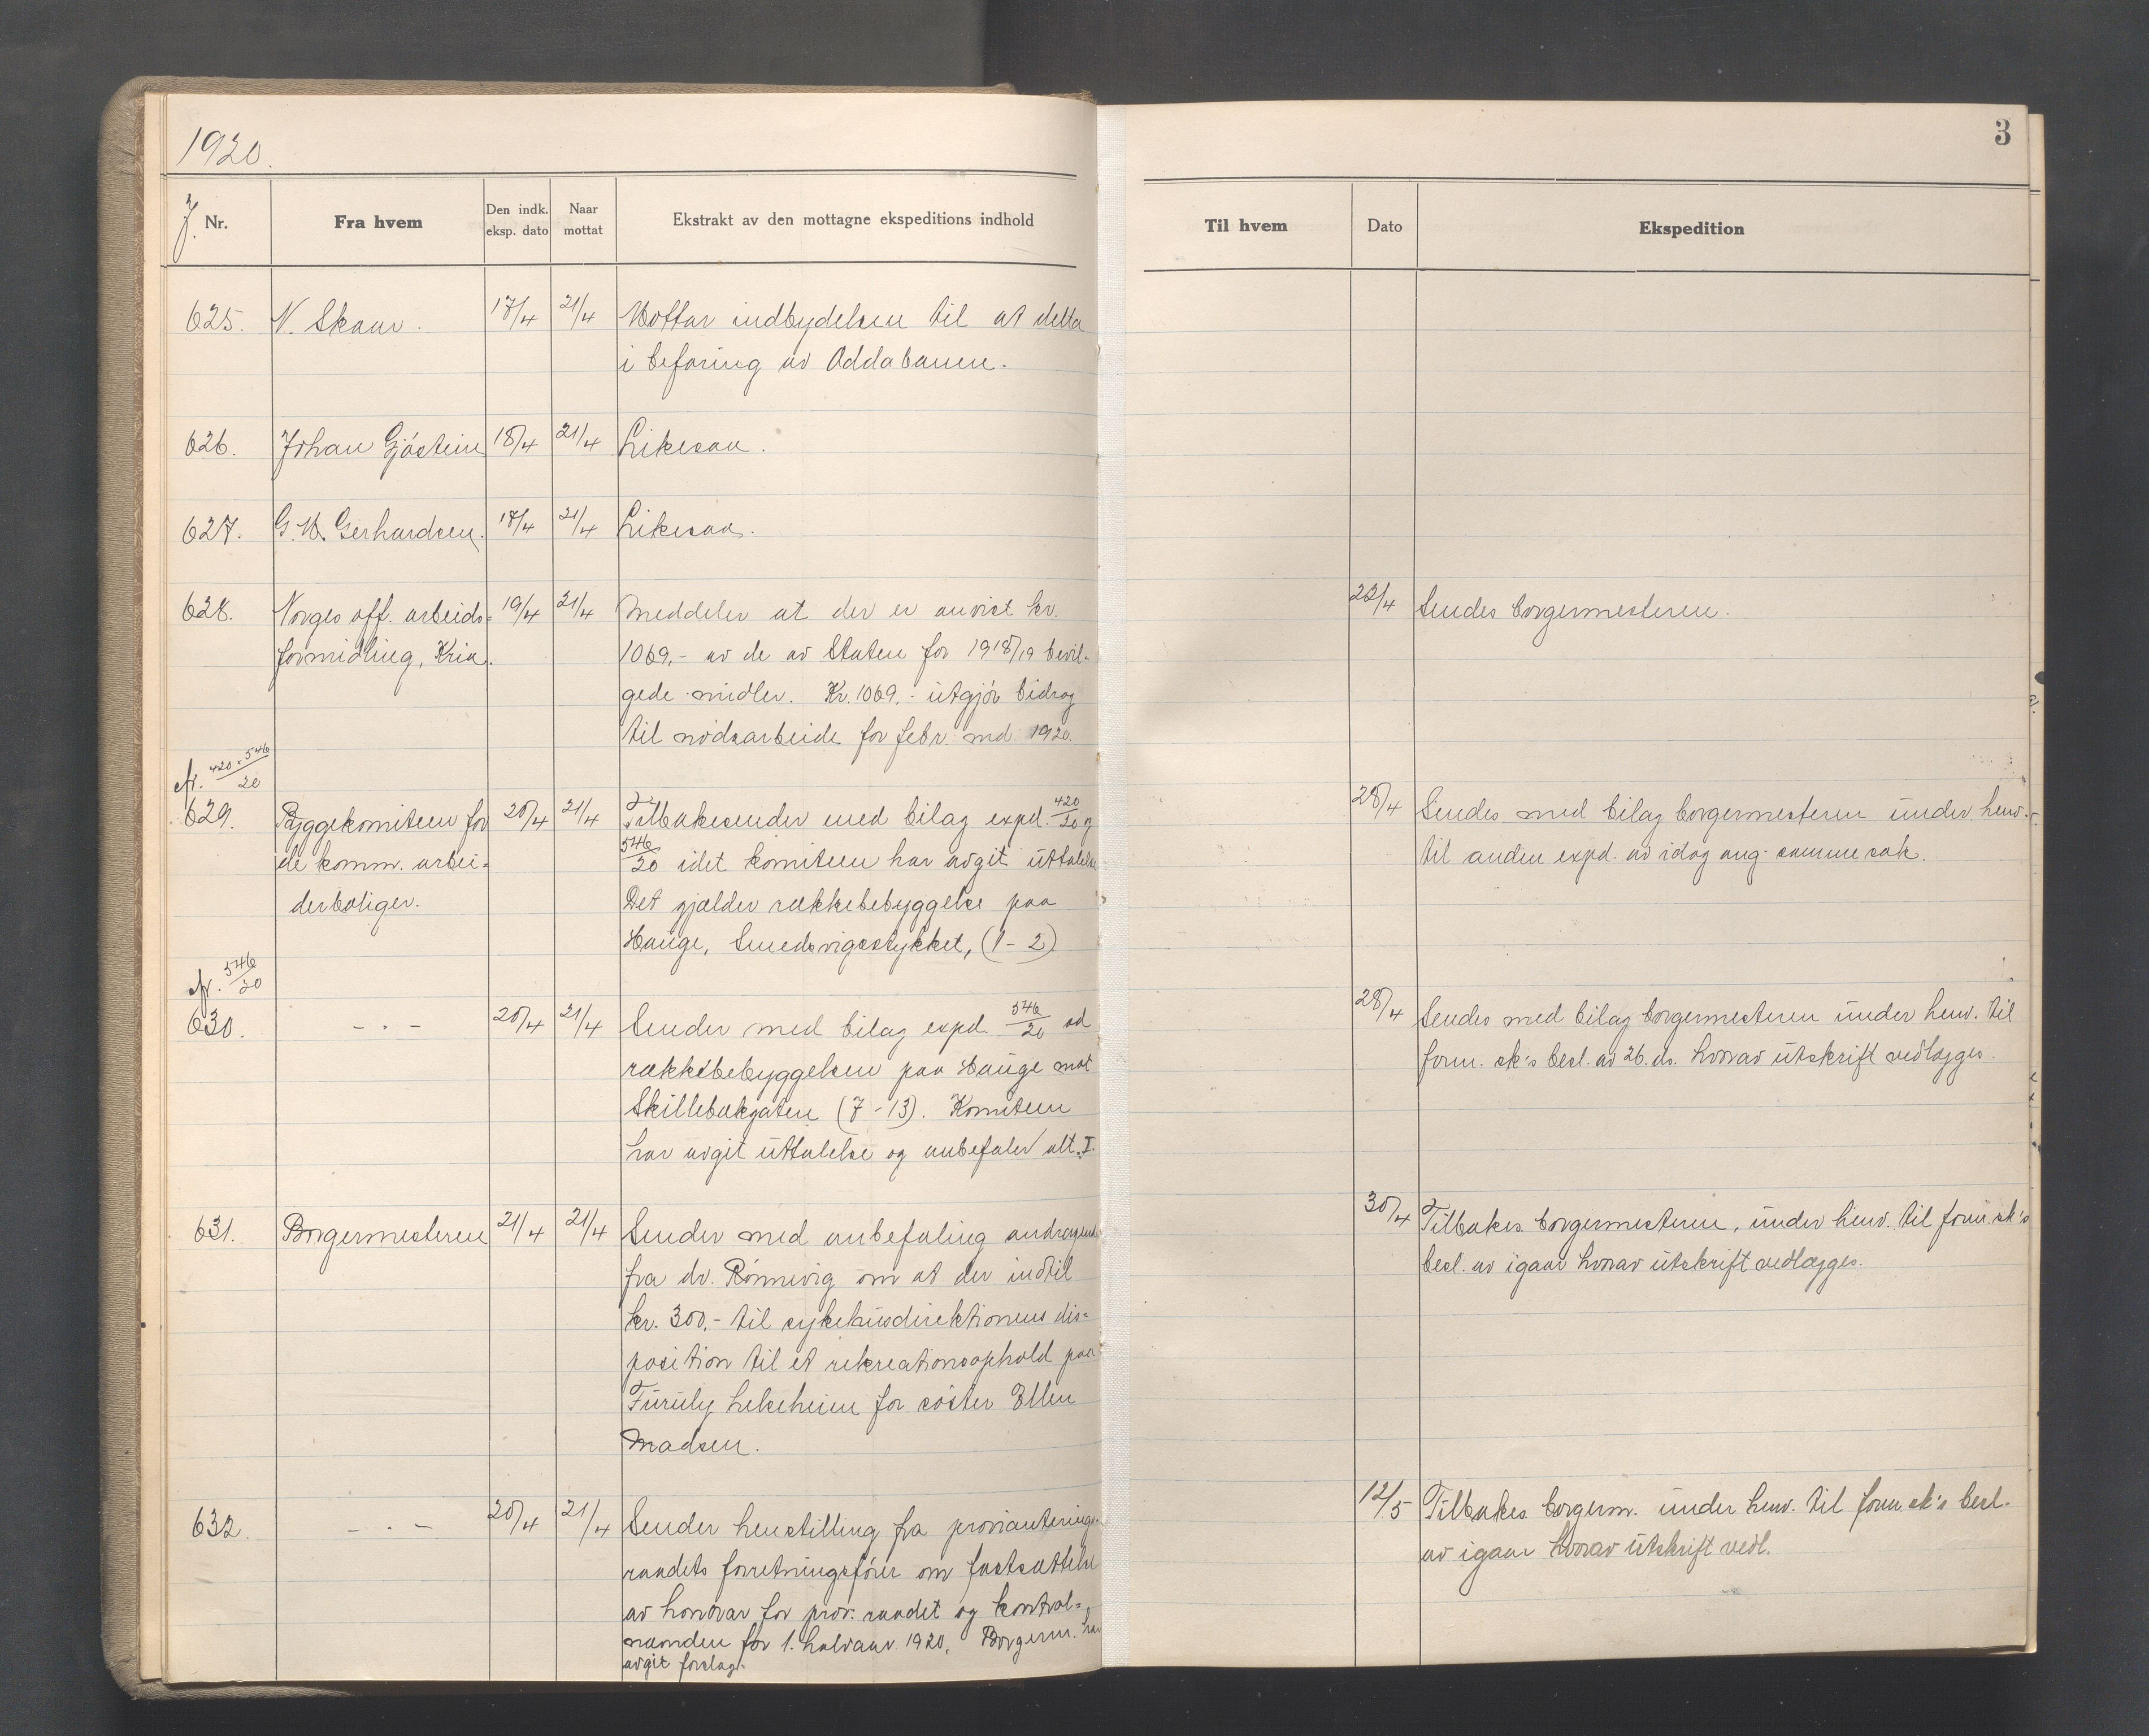 1920.
3
J. Nr.
Fra hvem
Den indk. eksp. dato
Naar mottat
Ekstrakt av den mottagne ekspeditions indhold
Til hvem
Dato
Ekspedition
625. N. Skaar. 17/4 21/4 Mottar indbydelsen til at delta
i befaring av Oddabanen.
626. Johan Gjöstein 18/4 21/4 Likesaa.
627. G. M. Gerhardsen. 17/4 21/4 Likesaa.
628. Norges off. arbeids= 19/4 21/4 Meddeler at der er anvist kr. 22/4 Sendes borgermesteren.
formidling, Kria. 1069,- av de av Staten for 1918/19 bevil-
gede midler. Kr. 1069.- utgjör bidrag
til nödsarbeide for febr. md. 1920.
cfr. 420 × 546/20
629. Byggekomiteen for 20/4 21/4 Tilbakesender med bilag expd. 420/20 og 28/4 Sendes med bilag borgermesteren under henv.
de komm. arbei= 546/20 idet komiteen har avgit uttalelse til anden expd. av idag ang. samme sak.
derboliger. Det gjælder rækkebebyggelse paa
Hauge, Smedsvigsstykket, (1-2)
cfr. 546/20
630. - " - 20/4 21/4 Sender med bilag expd. 546/20 ad 28/4 Sendes med bilag borgermesteren under henv. til
rækkebebyggelsen paa Hauge mot form. sk's besl. av 26. ds. hvorav utskrift vedlægges.
Skillebækgaten (7-13). Komiteen
har avgit uttalelse og anbefaler alt. I.
631. Borgermesteren 21/4 21/4 Sender med anbefaling andragende 30/4 Tilbakes. borgermesteren, under henv. til form.sk's
fra dr. Rönnevig om at der indtil besl. av igaar hvorav utskrift vedlægges.
kr. 300.- til sykehusdirektionens dis=
position til et rekreationsophold paa
Furuly hvileheim for söster Ellen
Madsen.
632. - " - 20/4 21/4 Sender henstilling fra provianterings- 12/5 Tilbakes. borgerm. under henv. til form sk's besl.
raadets forretningsförer om fastsættelse av igaar hvorav utskrift vedl.
av honorar for prov. raadet og kontrol=
nævnden for 1. halvaar 1920. Borgerm. har
avgit forslag.